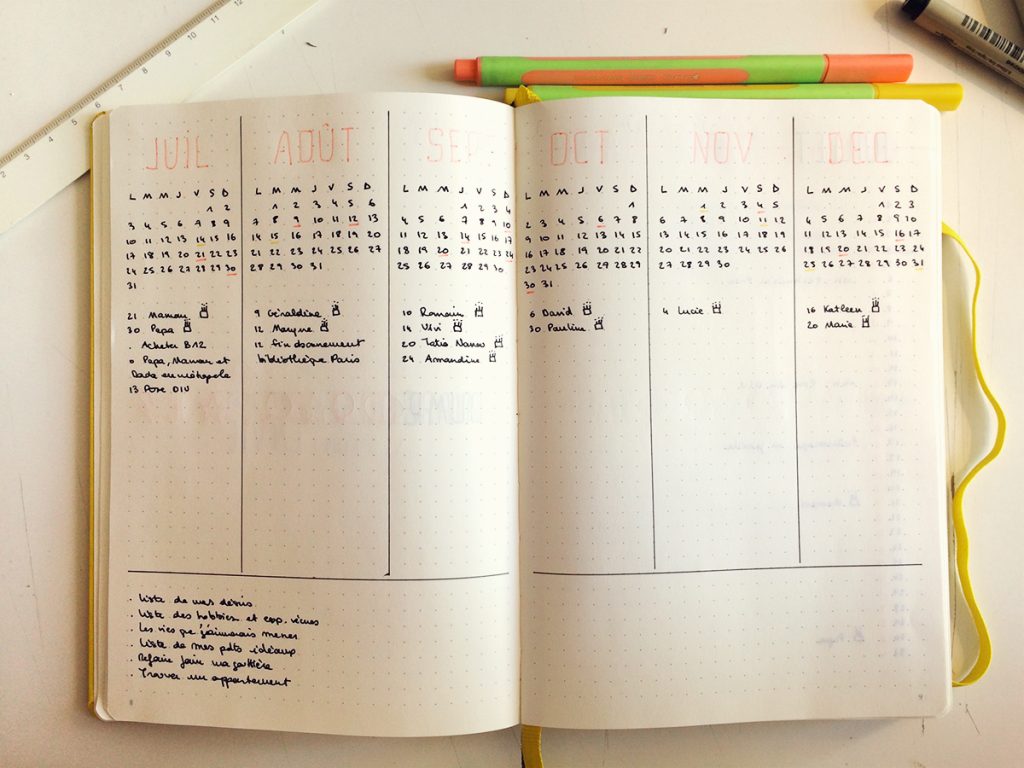 JUIL
L M M J V S D
1 2
3 4 5 6 7 8 9
10 11 12 13 14 15 16
17 18 19 20 21 22 23
24 25 26 27 28 29 30
31
21 Maman
30 Papa
. Acheter B12
o Papa, Maman et
Dada en métropole
13 Pose DIU
AOÛT
L M M J V S D
1 2 3 4 5 6
7 8 9 10 11 12 13
14 15 16 17 18 19 20
21 22 23 24 25 26 27
28 29 30 31
9 Géraldine
12 Maryne
12 fin abonnement
bibliothèque Paris
SEPT
L M M J V S D
1 2 3 4
4 5 6 7 8 9 10
11 12 13 14 15 16 17
18 19 20 21 22 23 24
25 26 27 28 29 30
10 Romain
14 Vivi
20 Tatie Nanou
24 Amandine
. Liste de mes désirs
. Liste des hobbies et exp. vécues
. Les vies que j'aimerais mener
. Liste de mes pdts idéaux
. Refaire faire ma gouttière
. Trouver un appartement
OCT
L M M J V S D
1
2 3 4 5 6 7 8
9 10 11 12 13 14 15
16 17 18 19 20 21 22
23 24 25 26 27 28 29
30 31
6 David
30 Pauline
NOV
L M M J V S D
1 2 3 4 5
6 7 8 9 10 11 12
13 14 15 16 17 18 19
20 21 22 23 24 25 26
27 28 29 30
4 Lucie
DEC
L M M J V S D
1 2 3
4 5 6 7 8 9 10
11 12 13 14 15 16 17
18 19 20 21 22 23 24
25 26 27 28 29 30 31
16 Katleen
20 Marie
2 3 4 5 6 7 8 9 10 11 12